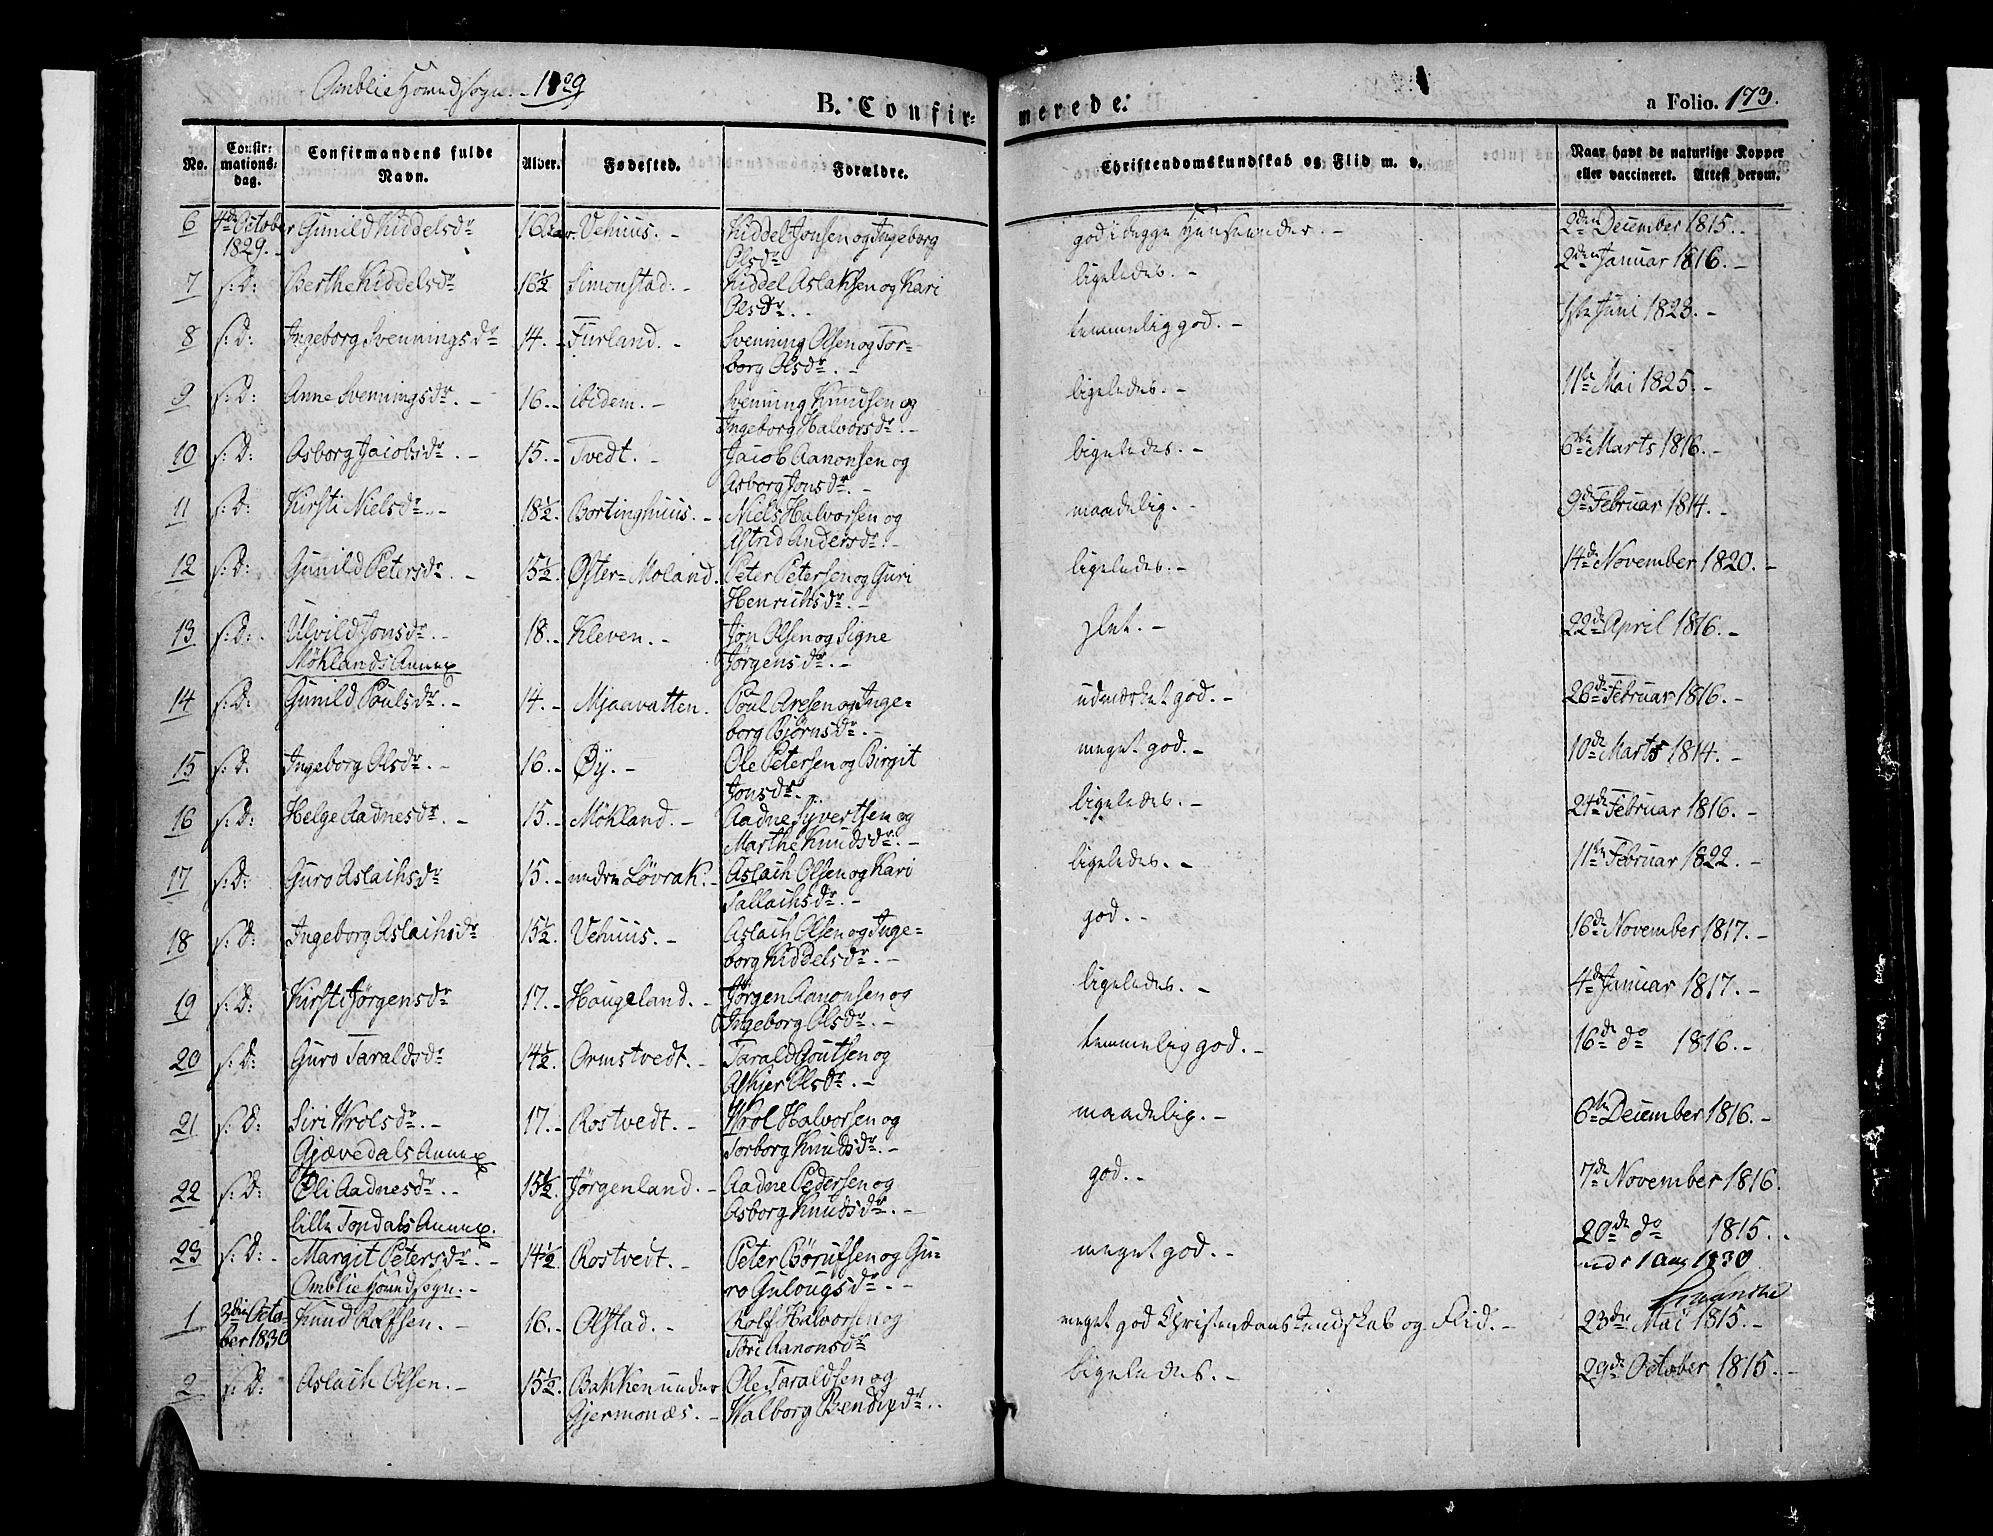 Amblie Hovedsogn. - 1829
B. Confir- merede. a Folio. 173.
No. Confir- mations- dag. Confirmandens fulde Navn. Alder. Fødested. Forældre. Christendomskundskab og Flid m. v. Naar havt de naturlige Kopper eller vaccineret. Attest derom.
6 4de October Gunild Kiddelsdr 16 Vehuus. - Kiddel Jonsen og Ingeborg god i begge Henseender. - 2den December 1815.
1829. - Olsdr
7 s: D: Berthe Kiddelsdr 16½ Simonstad. - Kiddel Aslaksen og Kari ligeledes. - 2den Januar 1816. -
Olsdr. -
8 s: D: Ingeborg Svenningsdr 14. - Furland. - Svenning Olsen og Tor- temmelig god. - 1ste Juni 1823. -
borg Olsdr. -
9 s: D: Anne Svenningsdr. - 16. - ibidem. - Svenning Knudsen og ligeledes. - 11te Mai 1825. -
Ingeborg Halvorsdr. -
10 s: D: Asborg Jacobsdr. - 15. - Tvedt. - Jacob Aanonsen og ligeledes. - 6te Marts 1816. -
Asborg Jonsdr. -
11 s: D: Kirsti Nielsdr. - 18½. Bortinghuus. - Niels Halvorsen og maadelig. - 9de Februar 1814. -
Astrid Andersdr. -
12 s: D: Gunild Petersdr. - 15½. Øster-Moland. Peter Petersen og Guri ligeledes. - 14de November 1820. -
Henrichsdr. -
13 s: D: Ulvild Jonsdr. - 18. - Kleven. - Jon Olsen og Signe slet. - 22de April 1816. -
Möklands Annex Jørgensdr. -
14 s: D: Gunild Poulsdr. - 14. - Mjaavatten. Poul Aresen og Inge- udmærket god. - 26de Februar 1816. -
borg Bjørnsdr. -
15 s: D. Ingeborg Olsdr. - 16. - Øÿ. - Ole Petersen og Birgit meget god. - 10de Marts 1814. -
Jonsdr. -
16 s: D: Helge Aadnesdr. - 15. - Mökland. - Aadne Syvertsen og ligeledes. - 24de Februar 1816. -
Marthe Knudsdr. -
17 s: D: Guro Aslachsdr 15. - nedre Lövrak. - Aslach Olsen og Kari ligeledes. - 11te Februar 1822. -
Tallachsdr. -
18 s: D: Ingeborg Aslachsdr 15½. Vehuus. - Aslach Olsen og Inge- god. - 16de November 1817. -
borg Kiddelsdr. -
19 s: D: Kirsti Jørgensdr 17. - Haugeland. - Jørgen Aanonsen og ligeledes. - 4de Januar 1817. -
Ingeborg Olsdr. -
20 s: D: Guro Taraldsdr 14½. Ormstvedt. - Tarald Goutsen og temmelig god. - 16de do 1816. -
Askjer Olsdr. -
21 s: D: Siri Wrolsdr. - 17. - Rostvedt. - Wrol Halvorsen og maadelig. - 6te December 1816. -
Gjævedals Annex Torborg Knudsdr. -
22 s: D: Oli Aadnesdr. - 15½. Jørgenland. - Aadne Pedersen og god. - 7de November 1816.
lille Topdals Annex. Asborg Knudsdr. -
23 s: D: - Margit Petersdr. - 14½ Rostvedt. - Peter Börufsen og Gu- meget god. - 20de do 1815.
Amblie Hovedsogn. - ro Gulougsdr. - 1 Aug 1830
1 3die Octo- Knud Rolfsen. - 16. - Olstad. - Rolf Halvorsen og meget god Christendoms kundskab og Flid. - 23de Mai 1815. -
ber 1830 Töri Aanonsdr
2 s: D: Aslach Olsen. - 15½. Bakken under Ole Taraldsen og ligeledes. - 29de October 1815. -
Gjermonæs. - Walborg Bendixdr. -